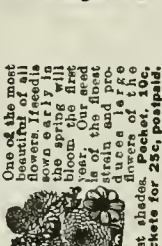 One of the most
beautiful of all
flowers. If seed is
sown early in
the spring will
bloom the first
year. Our seed
is of the finest
strain and pro-
duces large
flowers of the
st shades. Packet, 10c,
ckets for 25c, postpaid.